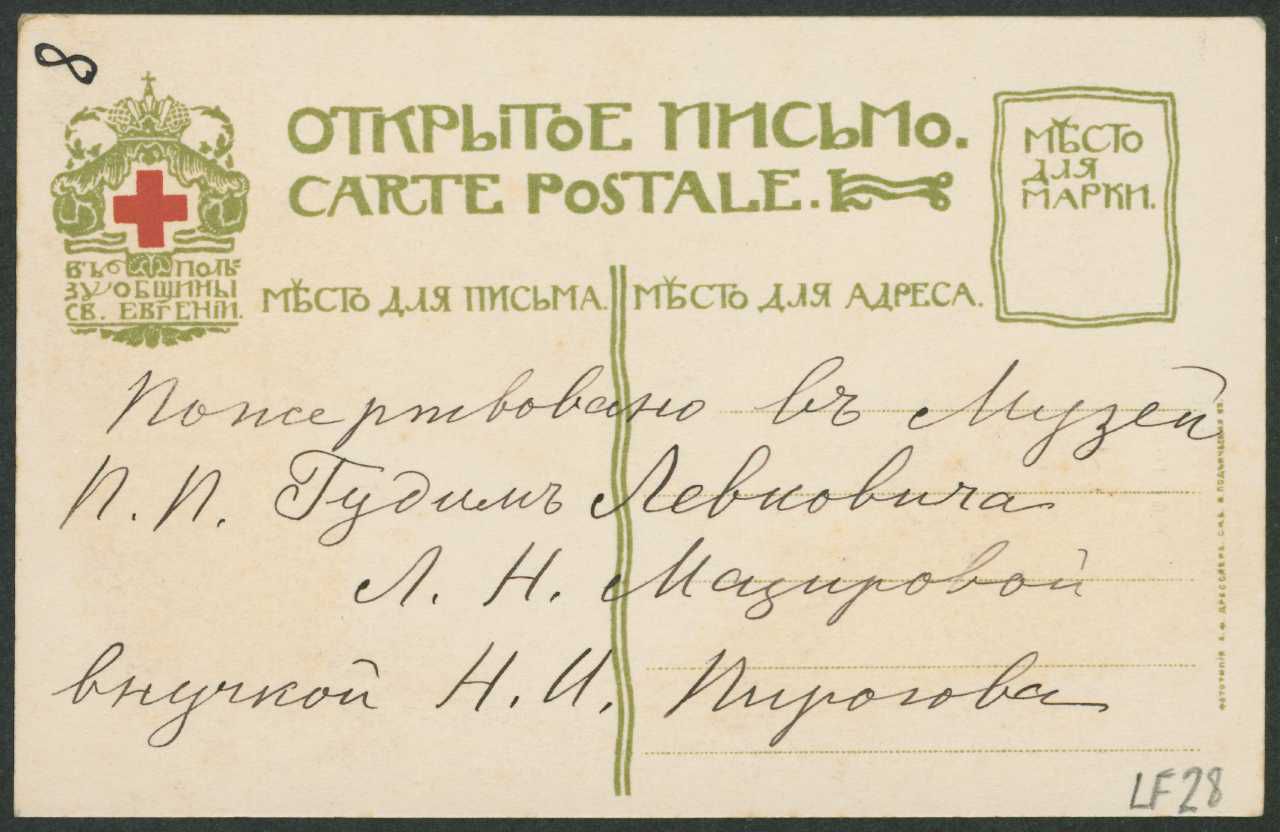 8
ОТКРЫТОЕ ПИСЬМО.
CARTE POSTALE.
МѢСТО
ДЛЯ
МАРКИ.
ВЪ ПОЛЬ-
ЗУ ОБЩИНЫ
СВ. ЕВГЕНІИ.
МѢСТО ДЛЯ ПИСЬМА.
МѢСТО ДЛЯ АДРЕСА.
Пожертвовано въ Музей
П. П. Гудимъ Левковича
Л. Н. Мазировой
внучкой Н. И. Пирогова
ФОТОТИПІЯ А. Ф. ДРЕССЛЕРЪ. С.П.Б.
LF28